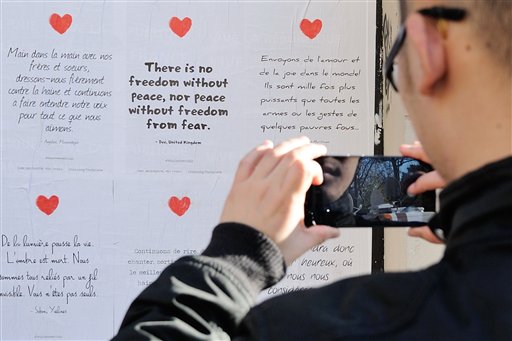 Main dans la main avec nos
frères et soeurs,
dressons-nous fièrement
contre la haine et continuons
a faire entendre notre voix
pour tout ce que nous
aimons.
There is no
freedom without
peace, nor peace
without freedom
from fear.
- Dee, United Kingdom
Envoyons de l'amour et
de la joie dans le monde!
Ils sont mille fois plus
puissants que toutes les
armes ou les gestes de
quelques pauvres fous.
De la lumière pousse la vie.
L'ombre est mort. Nous
sommes tous reliés par un fil
invisible. Vous n'êtes pas seuls.
Continuons de rire,
chanter, sortir
le meilleur
donc
heureux, où
nous nous